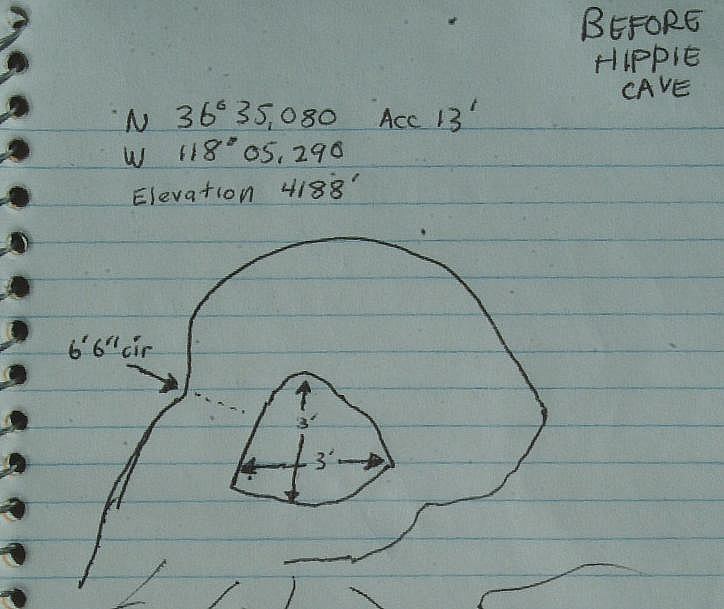 BEFORE
HIPPIE
CAVE
N 36° 35,080 Acc 13'
W 118° 05,290
Elevation 4188'
6'6" cir
3'
3'